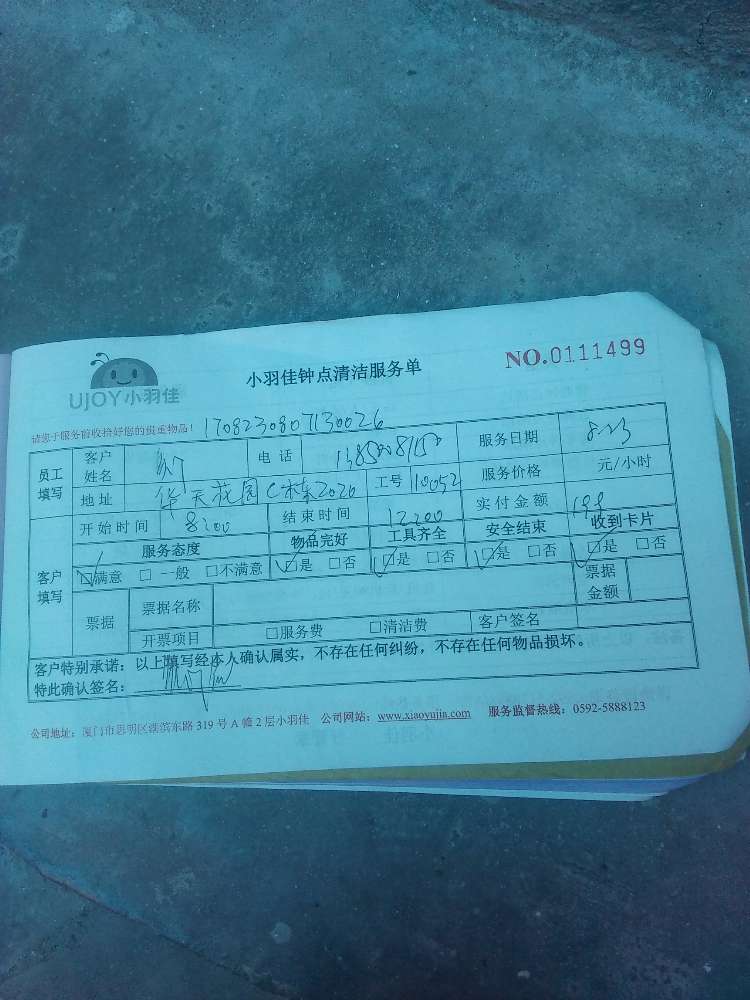 UJOY小羽佳
小羽佳钟点清洁服务单
NO.0111499
请您于服务前收拾好您的贵重物品！
1708230807130026
员工填写 客户姓名 电话 服务日期 8.23
地址 华天花园C栋2020 工号 110052 服务价格 元/小时
开始时间 8:00 结束时间 12:00 实付金额 199
客户填写 服务态度 物品完好 工具齐全 安全结束 收到卡片
☑满意 □一般 □不满意 ☑是 □否 ☑是 □否 ☑是 □否 ☑是 □否
票据 票据名称 票据金额
开票项目 □服务费 □清洁费 客户签名
客户特别承诺：以上填写经本人确认属实，不存在任何纠纷，不存在任何物品损坏。
特此确认签名：
公司地址：厦门市思明区湖滨东路 319 号 A 幢 2 层小羽佳 公司网站：www.xiaoyujin.com 服务监督热线：0592-5888123